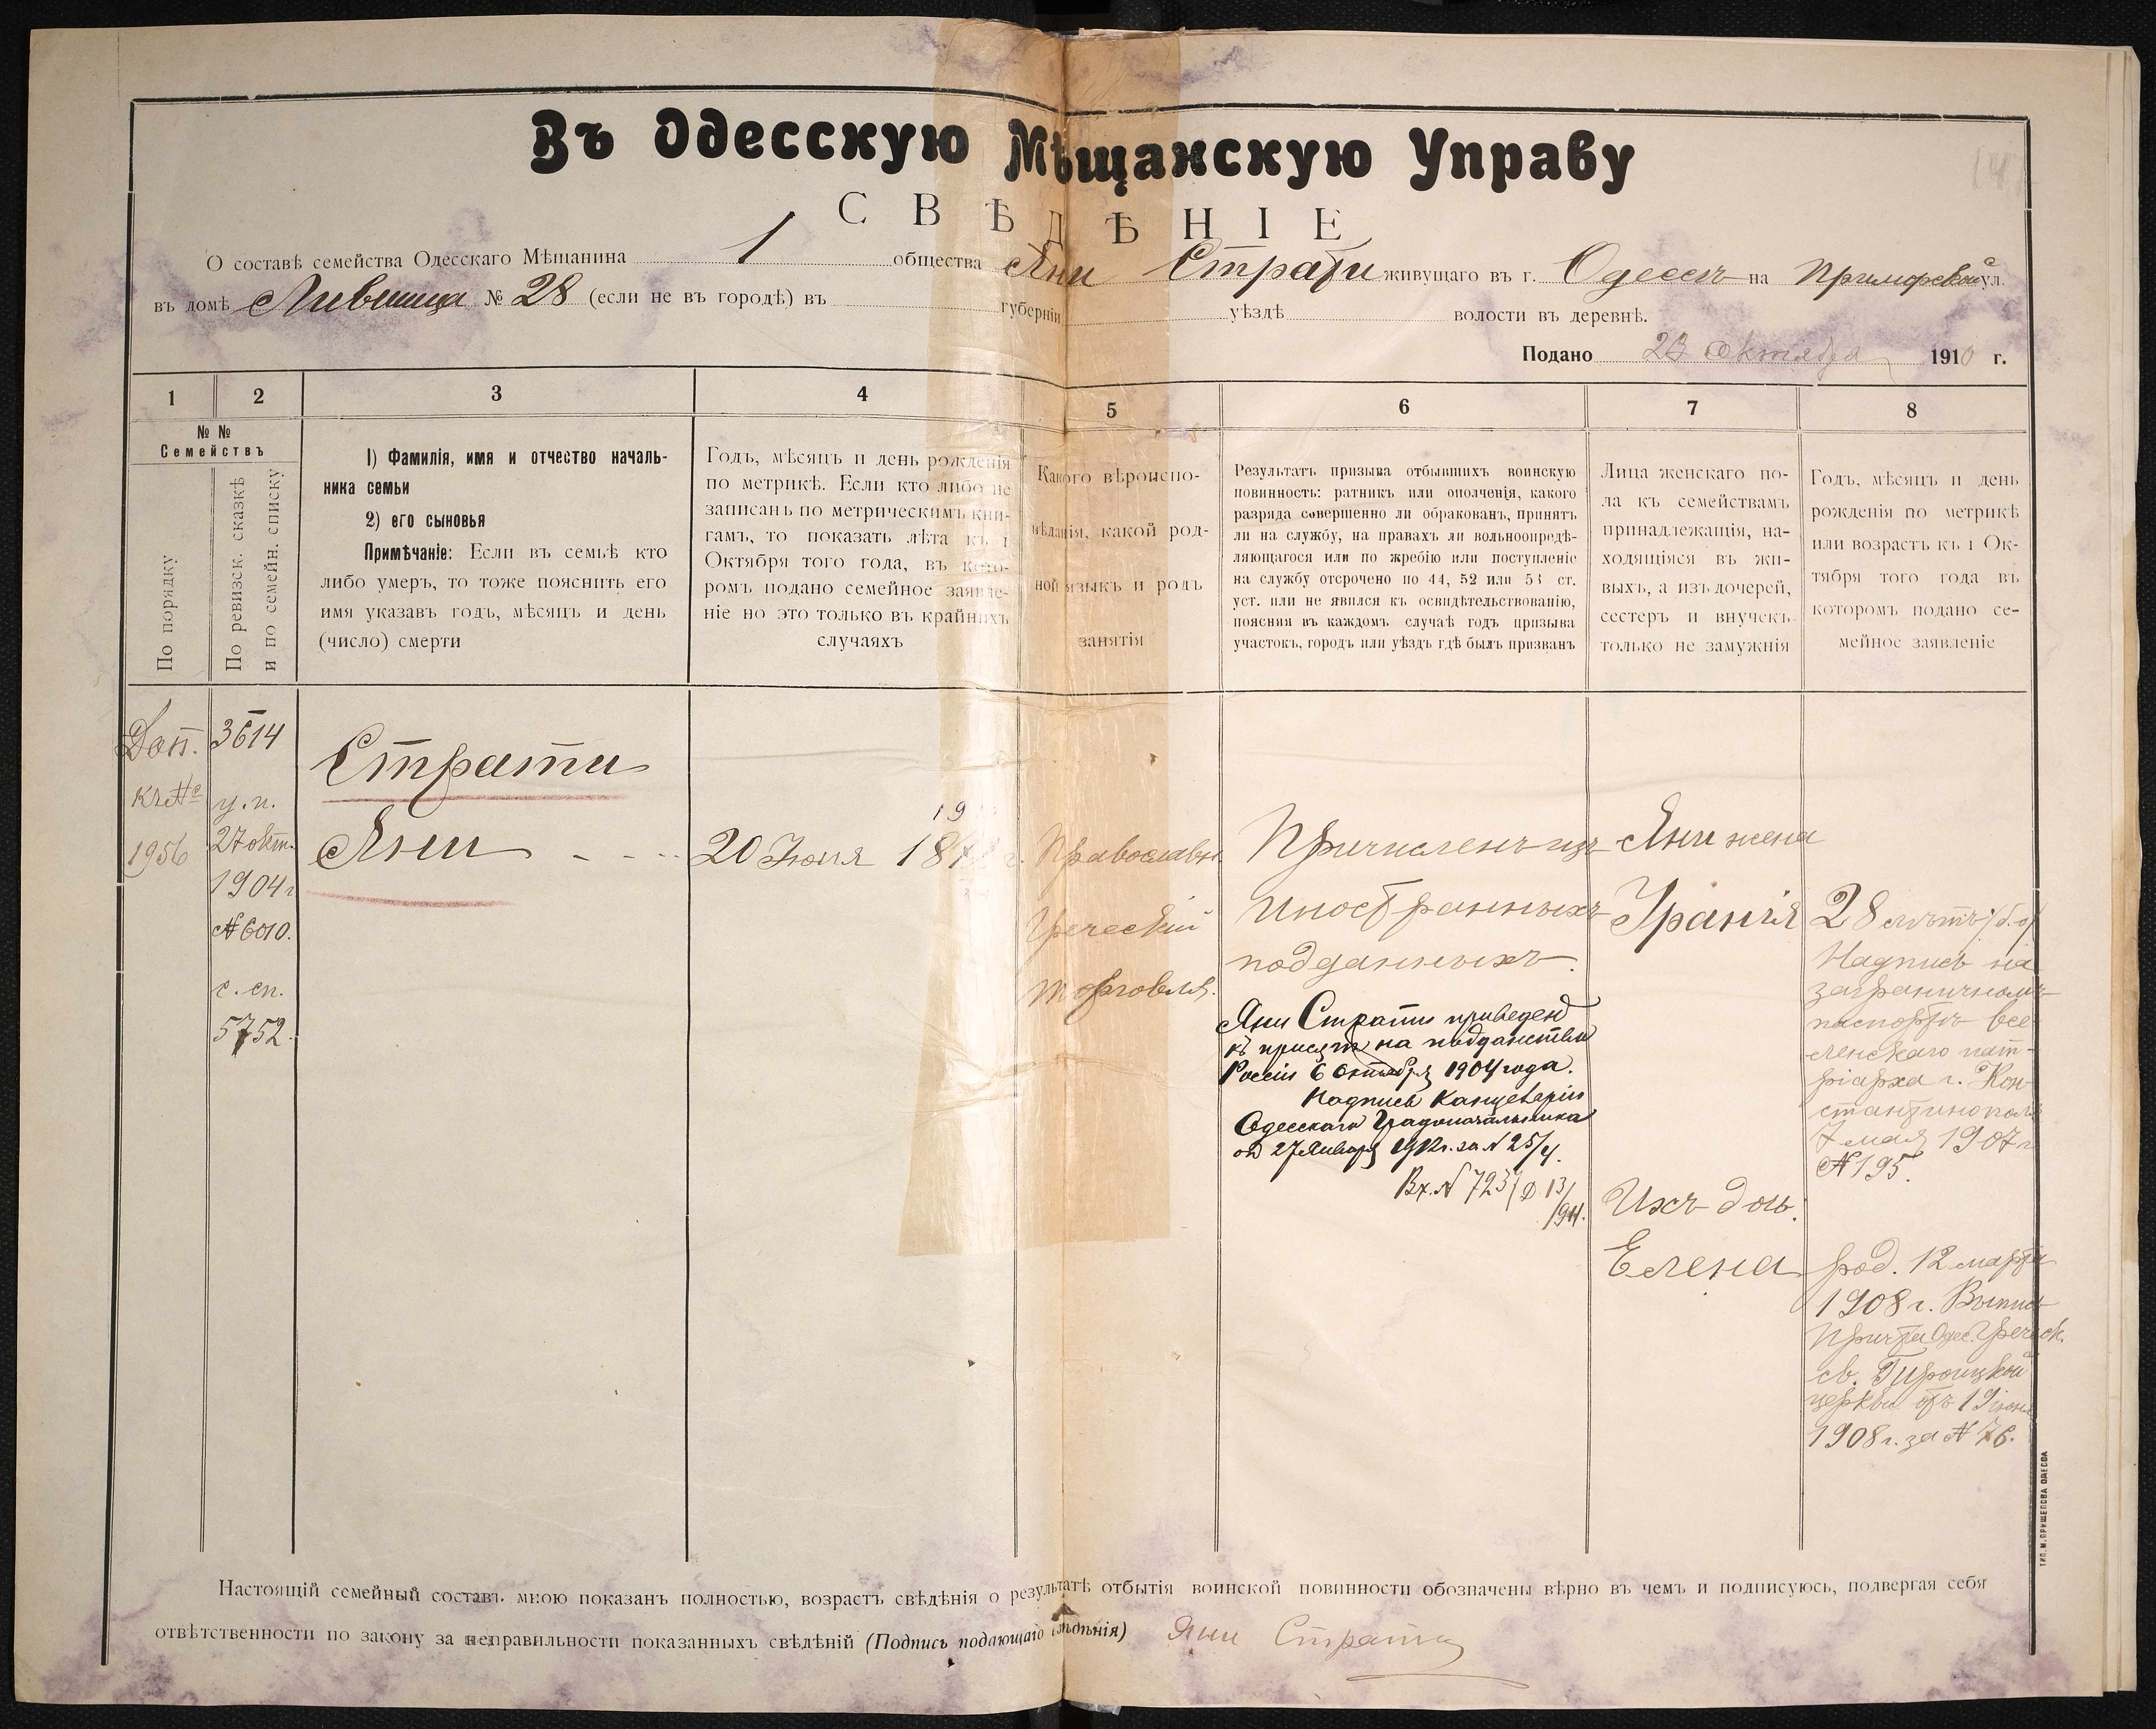 Въ Одесскую Мѣщанскую Управу
СВѢДѢНІЕ
О составѣ семейства Одесскаго Мѣщанина 1 общества Яни Страти живущаго въ г. Одессѣ на Приморской ул.
въ домѣ Лившица № 28 (если не въ городѣ) въ губерніи уѣздѣ волости въ деревнѣ.
Подано октября 1910 г.
1 2 3 4 5 6 7 8
№ №
Семействъ
По порядку
По ревизск. сказкѣ
и по семейн. списку
1) Фамилія, имя и отчество началь-
ника семьи
2) его сыновья
Примѣчаніе: Если въ семьѣ кто
либо умеръ, то тоже пояснить его
имя указавъ годъ, мѣсяцъ и день
(число) смерти
Годъ, мѣсяцъ и день рожденія
по метрикѣ. Если кто либо не
записанъ по метрическимъ кни-
гамъ, то показать лѣта къ 1
Октября того года, въ кото-
ромъ подано семейное заявле-
ніе но это только въ крайнихъ
случаяхъ
Какого вѣроиспо-
вѣданія, какой род-
ной языкъ и родъ
занятія
Результатъ призыва отбывшихъ воинскую
повинность: ратникъ или ополченія, какого
разряда совершенно ли обракованъ, принятъ
ли на службу, на правахъ ли вольноопредѣ-
ляющагося или по жребію или поступленіе
на службу отсрочено по 44, 52 или 53 ст.
уст. или не явился къ освидѣтельствованію,
поясняя въ каждомъ случаѣ годъ призыва
участокъ, городъ или уѣздъ гдѣ былъ призванъ
Лица женскаго по-
ла къ семействамъ
принадлежащія, на-
ходящіяся въ жи-
выхъ, а изъ дочерей,
сестеръ и внучекъ
только не замужнія
Годъ, мѣсяцъ и день
рожденія по метрикѣ
или возрастъ къ 1 Ок-
тября того года въ
которомъ подано се-
мейное заявленіе
Доп.
къ №
1956
3614
у. п.
27 окт.
1904 г
№ 6010.
с. сп.
5752.
Страти
Яни
19
20 Іюля 18
Православн.
Греческій
торговля.
Причисленъ изъ
иностранныхъ
подданныхъ.
Яни Страти приведенъ
къ присягѣ на подданство
Россіи 6 Октября 1904 года.
Надпись Канцеляріи
Одесскаго Градоначальника
от 27 Января за № 25/4.
Вх. № 723
Яни жена
Уранія
Ихъ дочь.
Елена
28 лѣтъ
Надпись на
заграничномъ
паспортѣ все-
ленскаго пат-
ріарха г. Кон-
стантинополя
7 мая 1907 г
№ 195.
род. 12 марта
1908 г. Выпись
Причта Одес. Греческ.
св. Троицкой
церкви отъ 19 іюня
1908 г. за № 76.
Настоящій семейный составъ мною показанъ полностью, возрастъ свѣдѣнія о результатѣ отбытія воинской повинности обозначены вѣрно въ чемъ и подписуюсь, подвергая себя
отвѣтственности по закону за неправильности показанныхъ свѣдѣній (Подпись подающаго свѣдѣнія) Яни Страти
ТИП. М. ПРИЩЕПОВА ОДЕССА